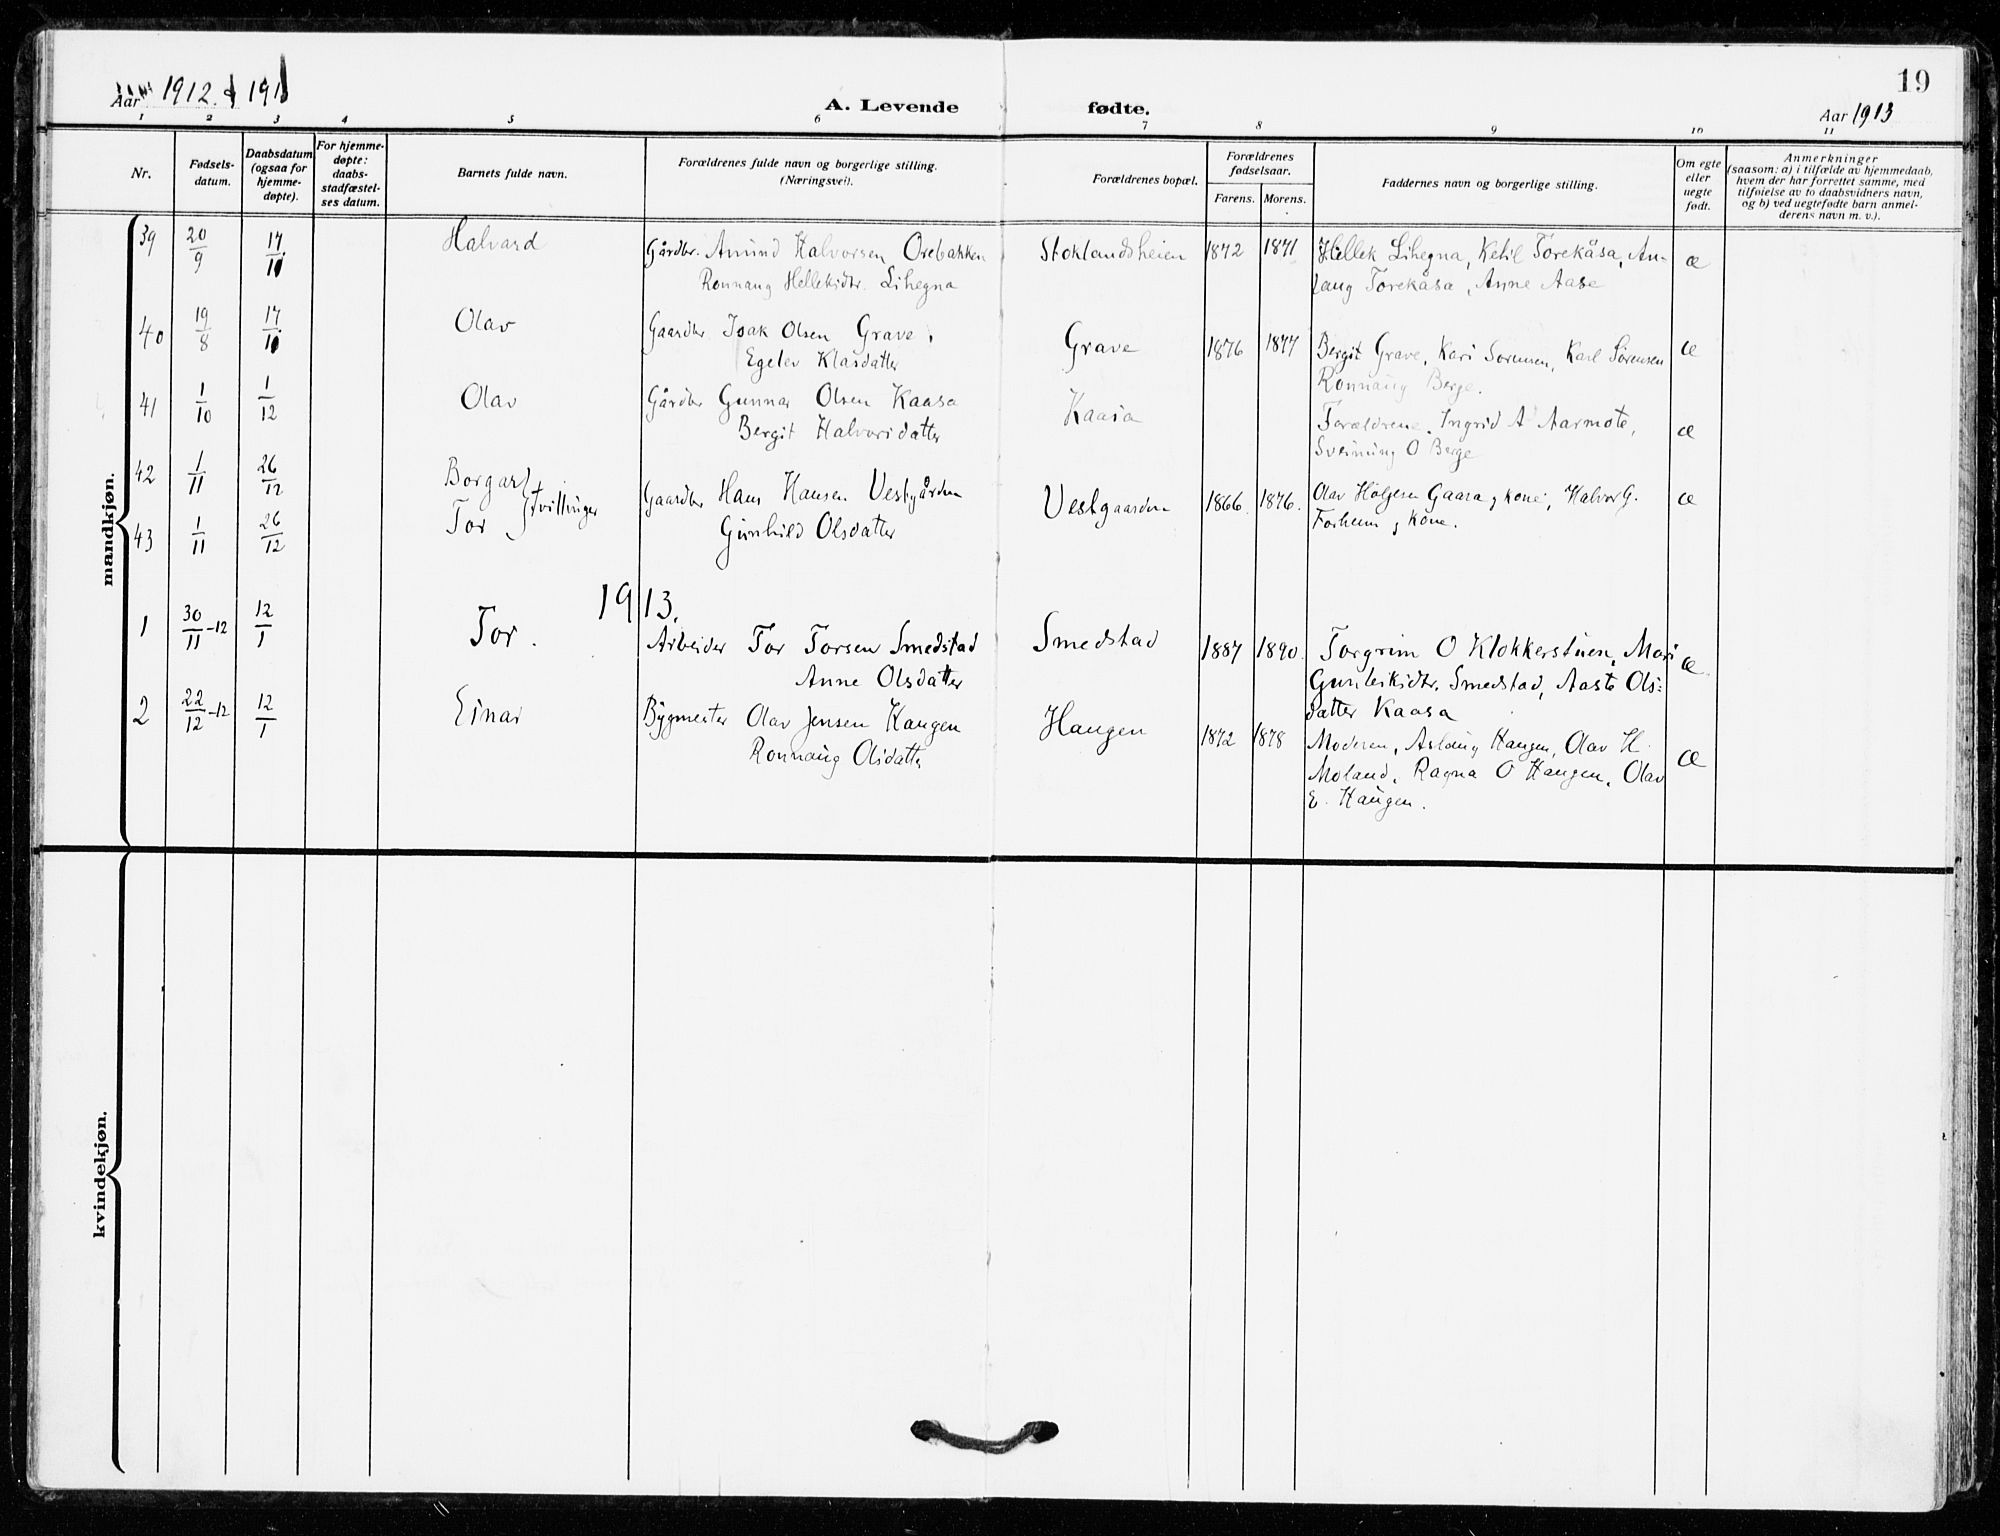 19
Aar 1912. & 191
A. Levende fødte.
Aar 1913
1 2 3 4 5 6 7 8 9 10 11
Nr.
Fødsels-
datum.
Daabsdatum
(ogsaa for
hjemme-
døpte).
For hjemme-
døpte:
daabs-
stadfæstel-
ses datum.
Barnets fulde navn.
Forældrenes fulde navn og borgerlige stilling.
(Næringsvei).
Forældrenes bopæl.
Forældrenes
fødselsaar.
Farens. Morens.
Faddernes navn og borgerlige stilling.
Om egte
eller
uegte
født.
Anmerkninger
(saasom: a) i tilfælde av hjemmedaab,
hvem der har forrettet samme, med
tilføielse av to daabsvidners navn,
og b) ved uegtefødte barn anmel-
derens navn m. v.).
mandkjøn.
39 20/9 17/11 Halvard Gårdbr. Amund Halvorsen Orebakken Stoklandsheien 1872 1871 Hellek Lihegna, Ketil Torekåsa, An- æ
Ronnaug Hellekidtr. Lihegna
laug Torekåsa, Anne Aase
40 19/8 17/11 Olav Gaardbr Isak Olsen Grave, Grave 1876 1877 Bergit Grave, Kari Sorensen, Karl Sörensen æ
Egelev Klasdatter
Ronnaug Berge.
41 1/10 1/12 Olav Gårdbr Gunnar Olsen Kaasa Kaasa Forældrene, Ingrid A Aarmote, æ
Bergit Halvorsdatter
Sveinung O Berge
42 1/11 26/12 Borgar Gaardbr Hans Hansen Vestgården Vestgaarden 1866. 1876. Olav Holjesen Gaara g kone, Halvor G. æ
Tvillinger
43 1/11 26/12 Tor Gunhild Olsdatter
Forheim g kone.
1913.
1 30/11-12 12/1 Tor. Arbeider Tor Torsen Smedstad Smedstad 1887 1890. Torgrim O Klokkerstuen, Mari æ
Anne Olsdatter
Gunleikidtr. Smedstad, Aaste Ols-
datter Kaasa
2 22/12-12 12/1 Einar Bygmester Olav Jensen Haugen Haugen 1872 1878 Moderen, Aslaug Haugen, Olav H. æ
Ronnaug Olsdatter
Moland, Ragna O Haugen, Olav
E. Haugen.
kvindekjøn.